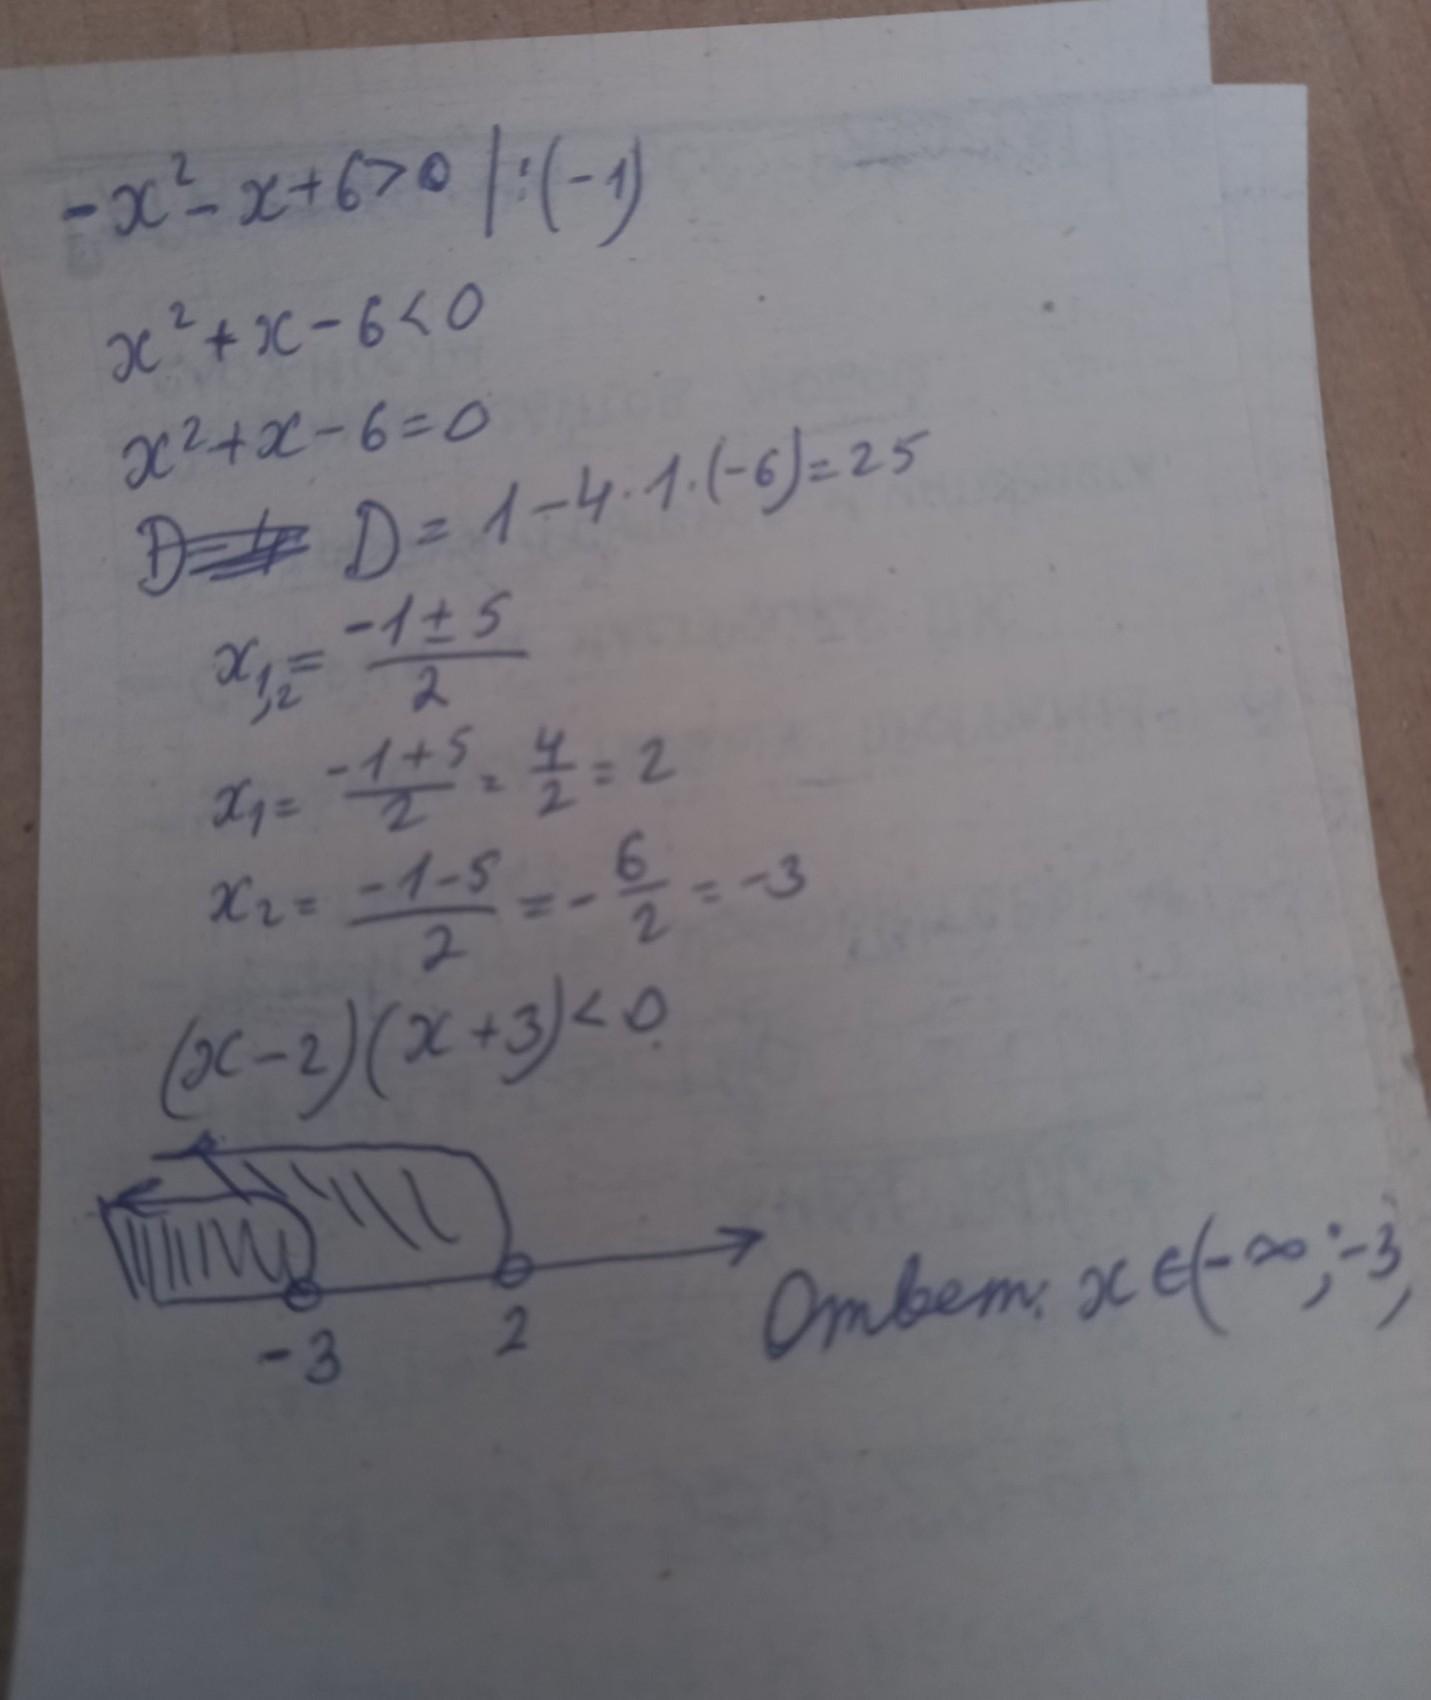 -x² - x + 6 > 0 | : (-1)
x² + x - 6 < 0
x² + x - 6 = 0
D = 1 - 4 · 1 · (-6) = 25
x₁,₂ = (-1 ± 5)/2
x₁ = (-1 + 5)/2 = 4/2 = 2
x₂ = (-1 - 5)/2 = - 6/2 = -3
(x - 2)(x + 3) < 0
-3 2
Ответ: x ∈ (-∞; -3)